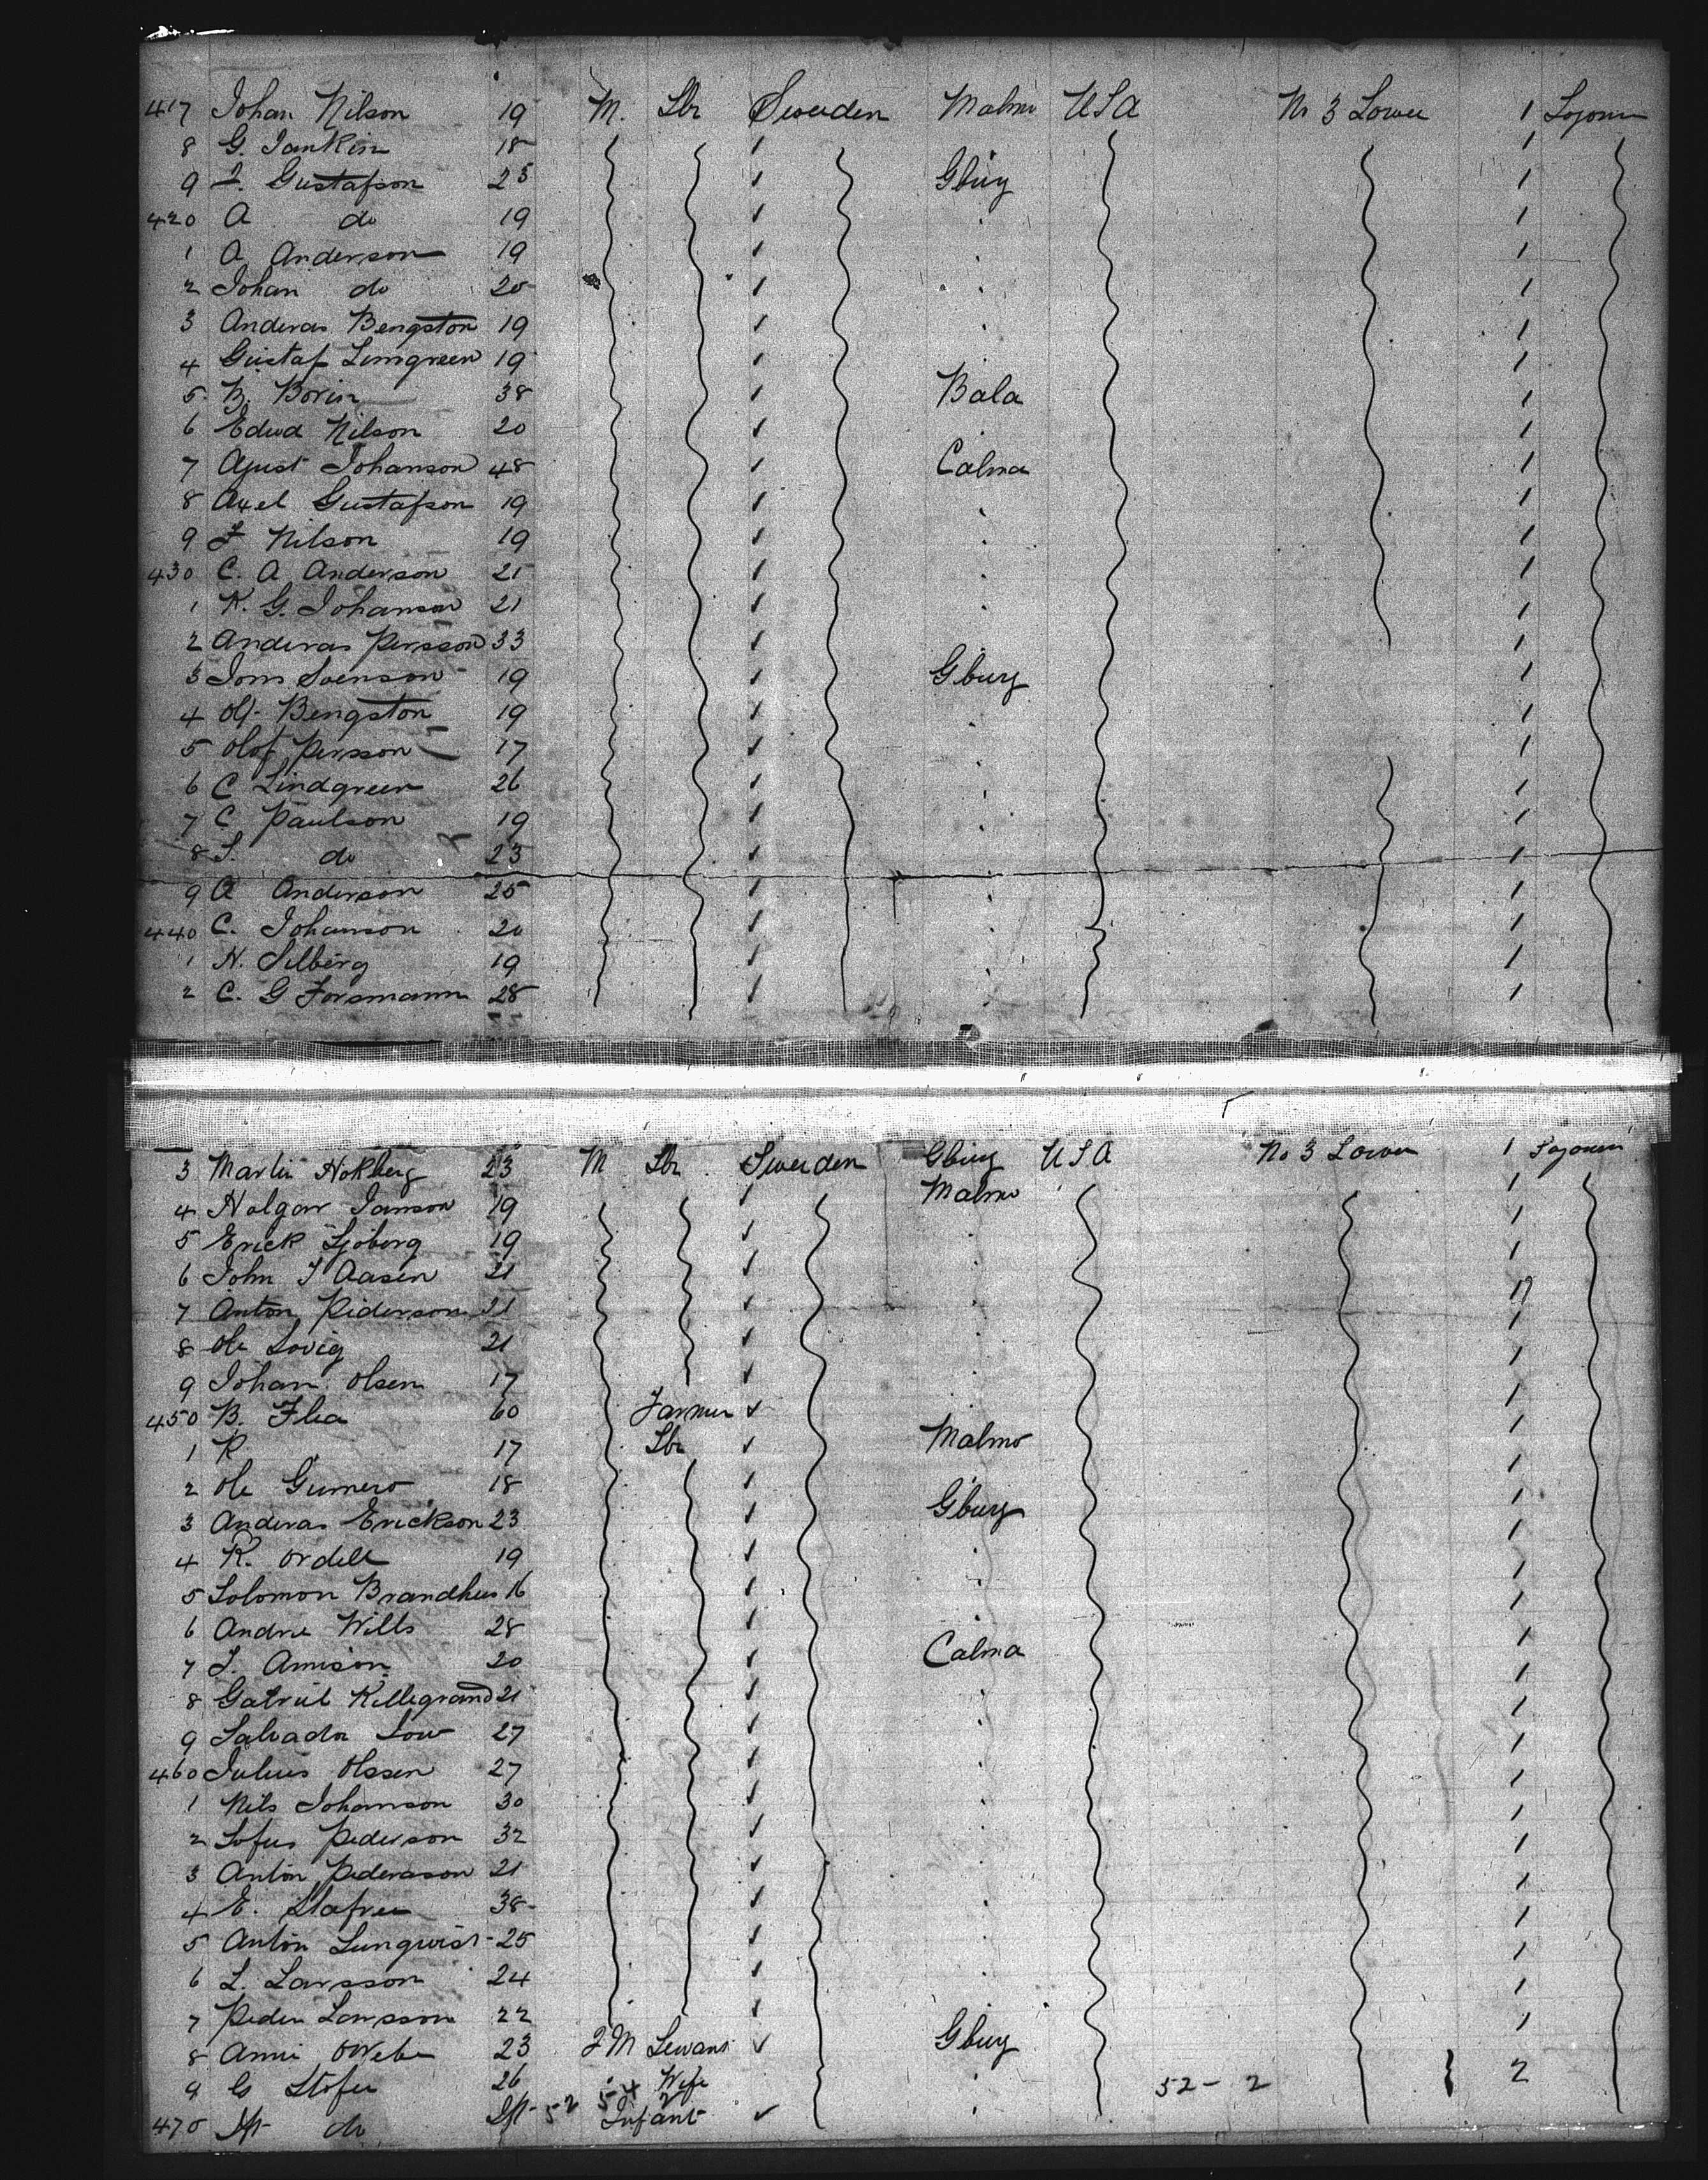 417 Johan Nilson 19 M. Lbr Sweden Malmo USA No 3 Lower 1 Sojourn
8 G. Jankin 18 1
9 J. Gustafson 25 Gburg 1
420 A do 19 1
1 A Anderson 19 1
2 Johan do 20 1
3 Anderas Bengston 19 1
4 Gustaf Lemgreen 19 1
5 B. Borin 38 Bala 1
6 Edwd Nilson 20 1
7 Ajust Johanson 48 Calma 1
8 Axel Gustafson 19 1
9 F Nilson 19 1
430 C. A Anderson 21 1
1 K. G. Johanson 21 1
2 Anderas Persson 33 1
3 Jons Svenson 19 Gburg 1
4 Olf Bengston 19 1
5 Olof Persson 17 1
6 C Lindgreen 26 1
7 C Paulson 19 1
8 S. do 23 1
9 A Anderson 25 1
440 C. Johanson 20 1
1 H. Silberg 19 1
2 C. G Forsmann 28 1
3 Martin Hokberg 23 M Lbr Sweden Gburg USA No 3 Lower 1 Sojourn
4 Holgar Janson 19 Malmo 1
5 Erick Sjoberg 19 1
6 John J Aasen 21 1
7 Anton Piderson 21 1
8 Ole Lovig 21 1
9 Johan Olsen 17 1
450 B. Flea 60 Farmer 1
1 K 17 Lbr Malmo 1
2 Ole Gumero 18 1
3 Anderas Erickson 23 Gburg 1
4 K. Ordell 19 1
5 Solomon Brandhus 16 1
6 Andre Wills 28 1
7 J. Amison 20 Calma 1
8 Gabriel Killegrand 21 1
9 Salvador Low 27 1
460 Julius Olssen 27 1
1 Nils Johanson 30 1
2 Sofus Pederson 32 1
3 Anton Pederason 21 1
4 E. Stafren 38 1
5 Anton Lunqvist 25 1
6 L. Larsson 24 1
7 Peder Larsson 22 1
8 Anni 23 M Gburg
9 26 Wife 52 - 2 2
470 Inft do Inft 52 Infant